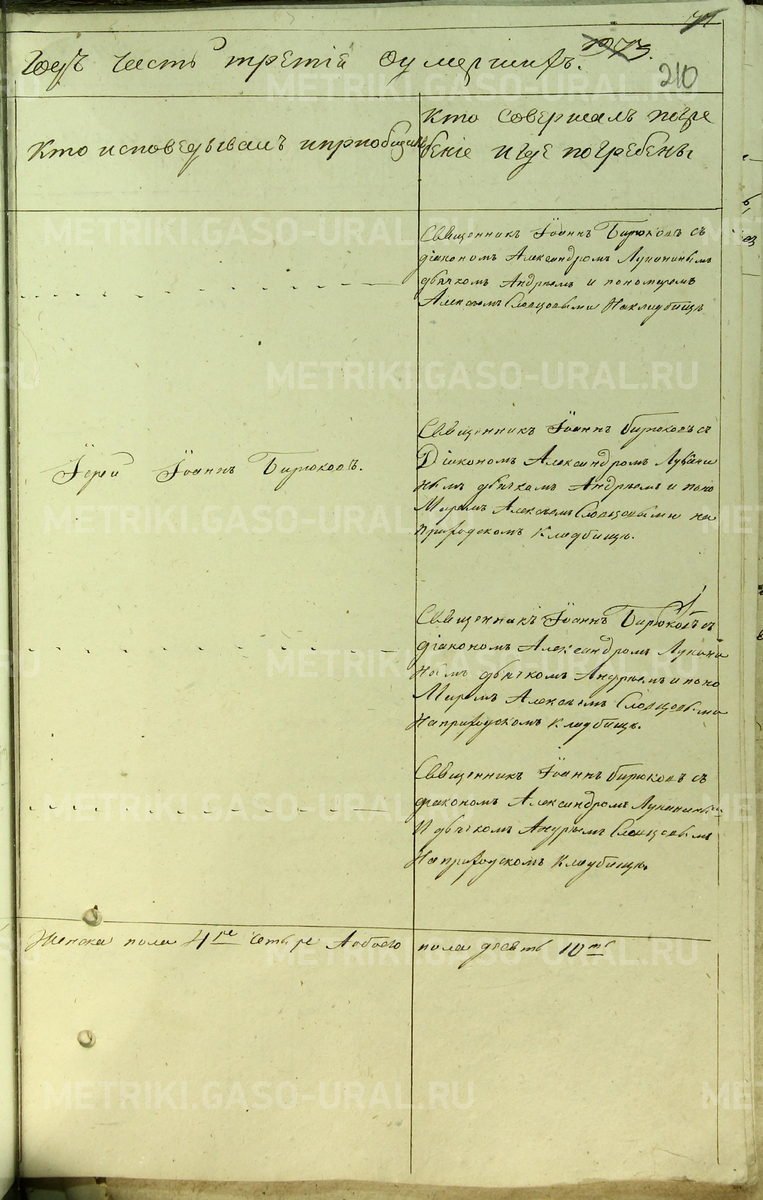 71
Годъ часть третiя о умершихъ. 1873.
210
Кто исповѣдывалъ и прiобщалъ
Кто совершалъ погре
бенiе и гдѣ погребены
Священникъ Iоаннъ Бирюковъ съ
дiакономъ Александромъ Лукинымъ
дьячкомъ Андреемъ и пономаремъ
Алексѣемъ Словцовыми На кладбищѣ
Iерей Iоаннъ Бирюковъ.
Священникъ Iоаннъ Бирюковъ съ
Дiакономъ Александромъ
нымъ дьячкомъ Андреемъ и поно
маремъ Алексѣемъ Словцовыми на
приходскомъ кладбищѣ.
Священникъ Iоаннъ Бирюковъ съ
дiакономъ Александромъ
нымъ дьячкомъ Андреемъ и поно
маремъ Алексѣемъ Словцовыми
На приходскомъ кладбищѣ.
Священникъ Iоаннъ Бирюковъ съ
дiакономъ Александромъ
И дьячкомъ Андреемъ Словцовымъ
На приходскомъ кладбищѣ.
Женска пола 4ре четыре А обоего пола десять 10ть
METRIKI.GASO-URAL.RU